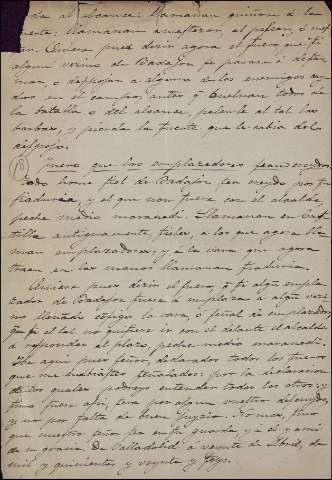 ida al alcance: llamavan guiñon a la
llamavan
Quiere pues dezir agora el fuero que si
algun vezino de Badajoz se parare a despo
jar, o despojare a alguno de los enemigos
en el campo, antes q buelvan todos de
la batalla o del alcance, pelenle al tal las
barbas, y pierda la suerte que le cabia del
despojo.
(10) Fuero que los emplazadores sean creydos
todo home fiel de Badajoz, sea creydo por su
fraduria, y el que non fuere con el alcalde,
peche medio maravedi. Llamavan en Cas
tilla antiguamente, fieles, a los que agora lla
man emplazadores, y a la vara que agora
traen en las manos llamavan fraduria.
Quiere pues dezir el fuero q si algun empla
zador de Badajoz fuere a emplazar a algun vezi
no llevado consigo la vara, o señal de emplazador,
que si el tal no quisiere ir con el delante el alcalde
a responder al plazo, peche medio maravedi.
He aqui pues señor, declarados todos los fueros
que me haviades señalados: por la declaracion
de los quales podreys entender todos los otros: y
sino fuere asi, sera por alguna vuestra
y no por falta de buen juyzio. No mas, sino
que nuestro señor sea en su guarda, y a el y a mi
de su gracia. De Valladolid a veynte de Abril, de
mil y quinientos, y veynte y seys.